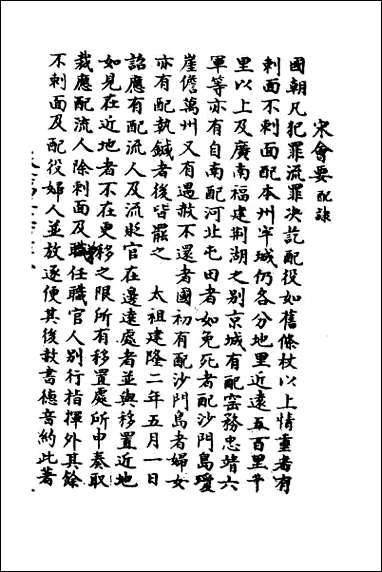 宋會要 配隸
國朝凡犯罪流罪决訖配役如舊條杖以上情重者有
刺面不刺面配本州牢城仍各分地里近遠五百里千
里以上及廣南福建荆湖之别京城有配窑務忠靖六
軍等亦有自南配河北屯田者如免死者配沙門島瓊
崖儋萬州又有遇赦不還者國初有配沙門島者婦女
亦有配執鍼者後皆罷之 太祖建隆二年五月一日
詔應有配流人及流貶官在邊遠處者並與移置近地
如見在近地者不在更移之限所有移置處所申奏取
裁應配流人除刺面及職任職官人别行指揮外其餘
不刺面及配役婦人並放逐便其後赦書德音約此著